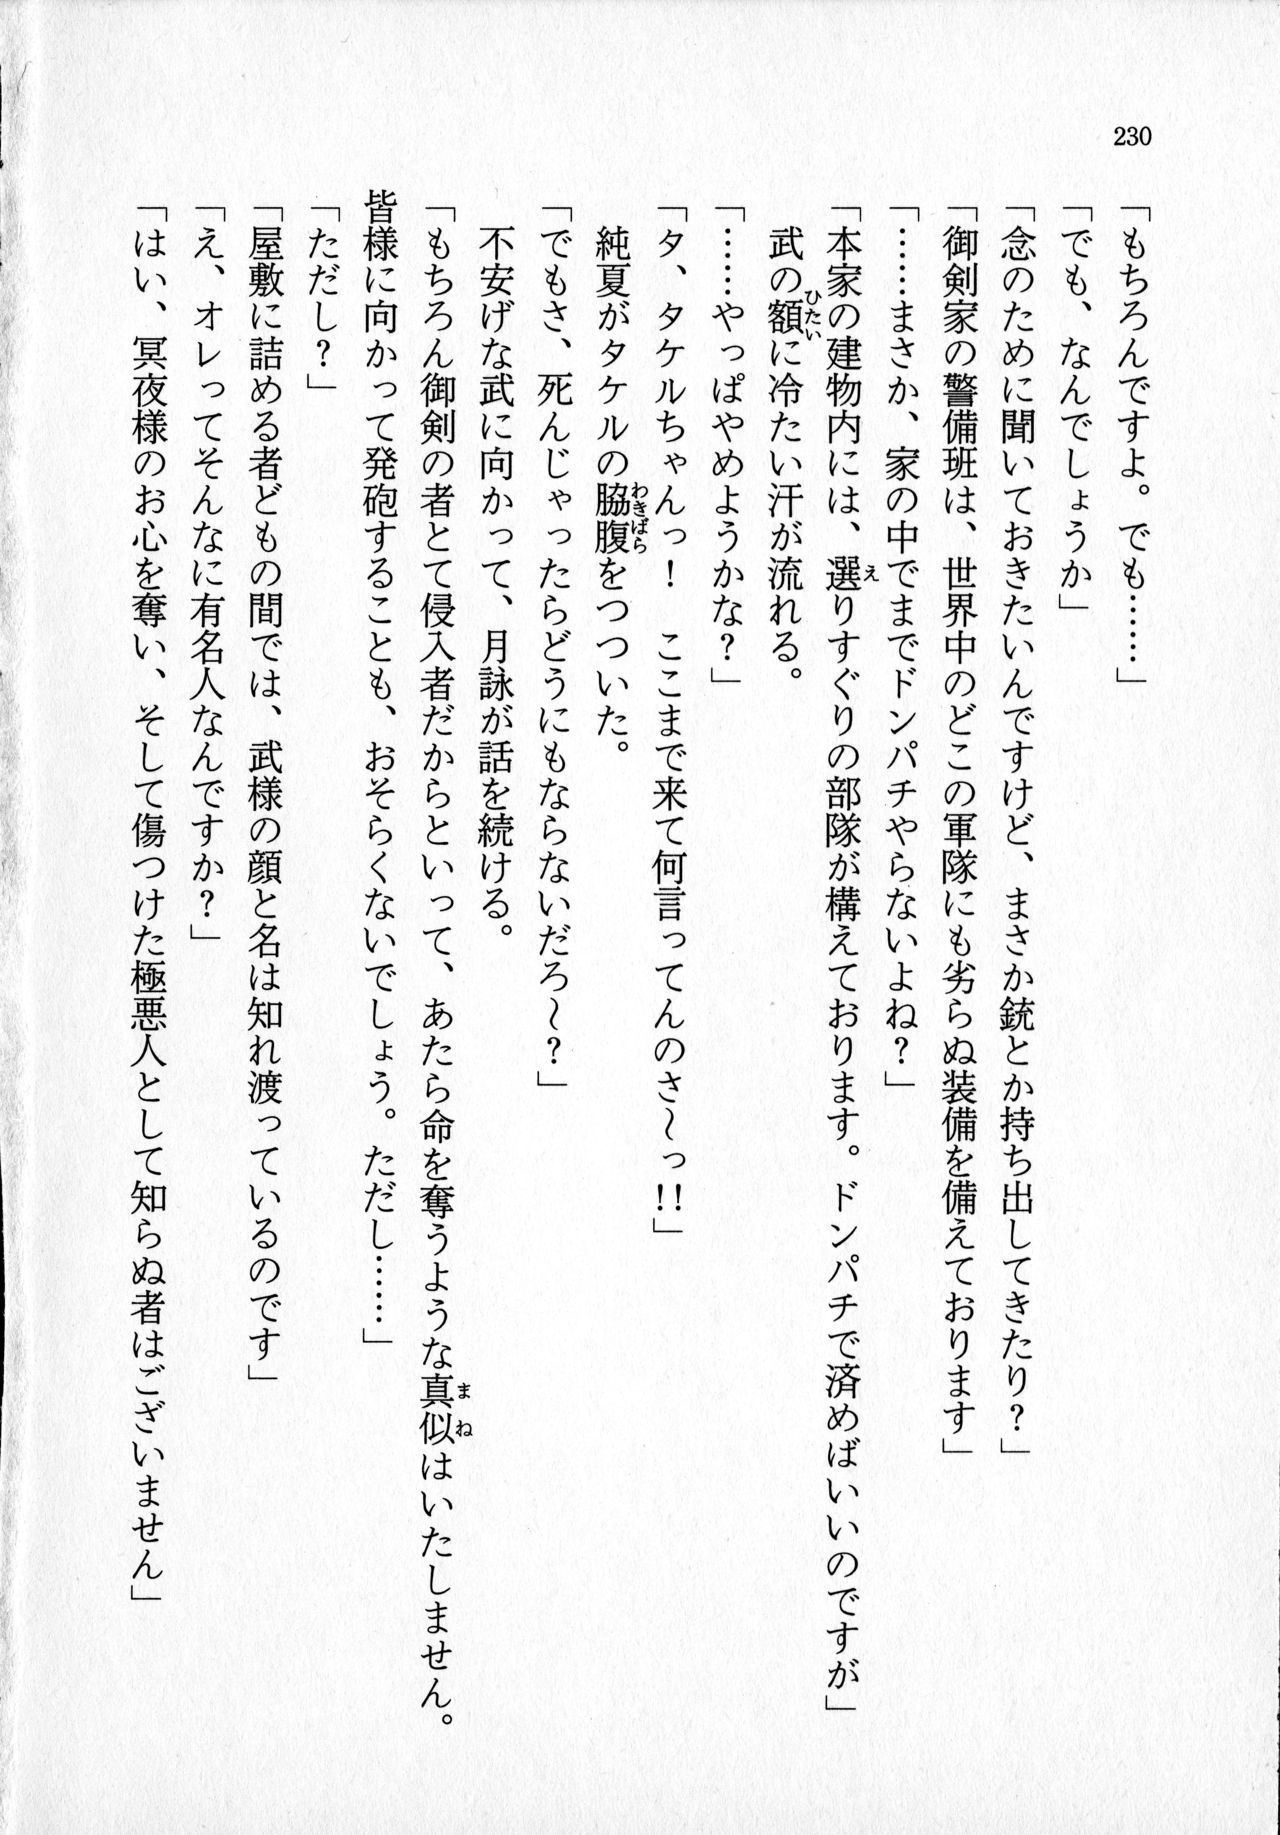 230
「もちろんですよ。でも……」
「でも、なんでしょうか」
「念のために聞いておきたいんですけど、まさか銃とか持ち出してきたり？」
「御剣家の警備班は、世界中のどこの軍隊にも劣らぬ装備を備えております」
「……まさか、家の中でまでドンパチやらないよね？」
「本家の建物内には、選りすぐりの部隊が構えております。ドンパチで済めばいいのですが」
　武の額に冷たい汗が流れる。
「……やっぱやめようかな？」
「タ、タケルちゃんっ！　ここまで来て何言ってんのさ〜っ!!」
　純夏がタケルの脇腹をつついた。
「でもさ、死んじゃったらどうにもならないだろ〜？」
　不安げな武に向かって、月詠が話を続ける。
「もちろん御剣の者とて侵入者だからといって、あたら命を奪うような真似はいたしません。
皆様に向かって発砲することも、おそらくないでしょう。ただし……」
「ただし？」
「屋敷に詰める者どもの間では、武様の顔と名は知れ渡っているのです」
「え、オレってそんなに有名人なんですか？」
「はい、冥夜様のお心を奪い、そして傷つけた極悪人として知らぬ者はございません」